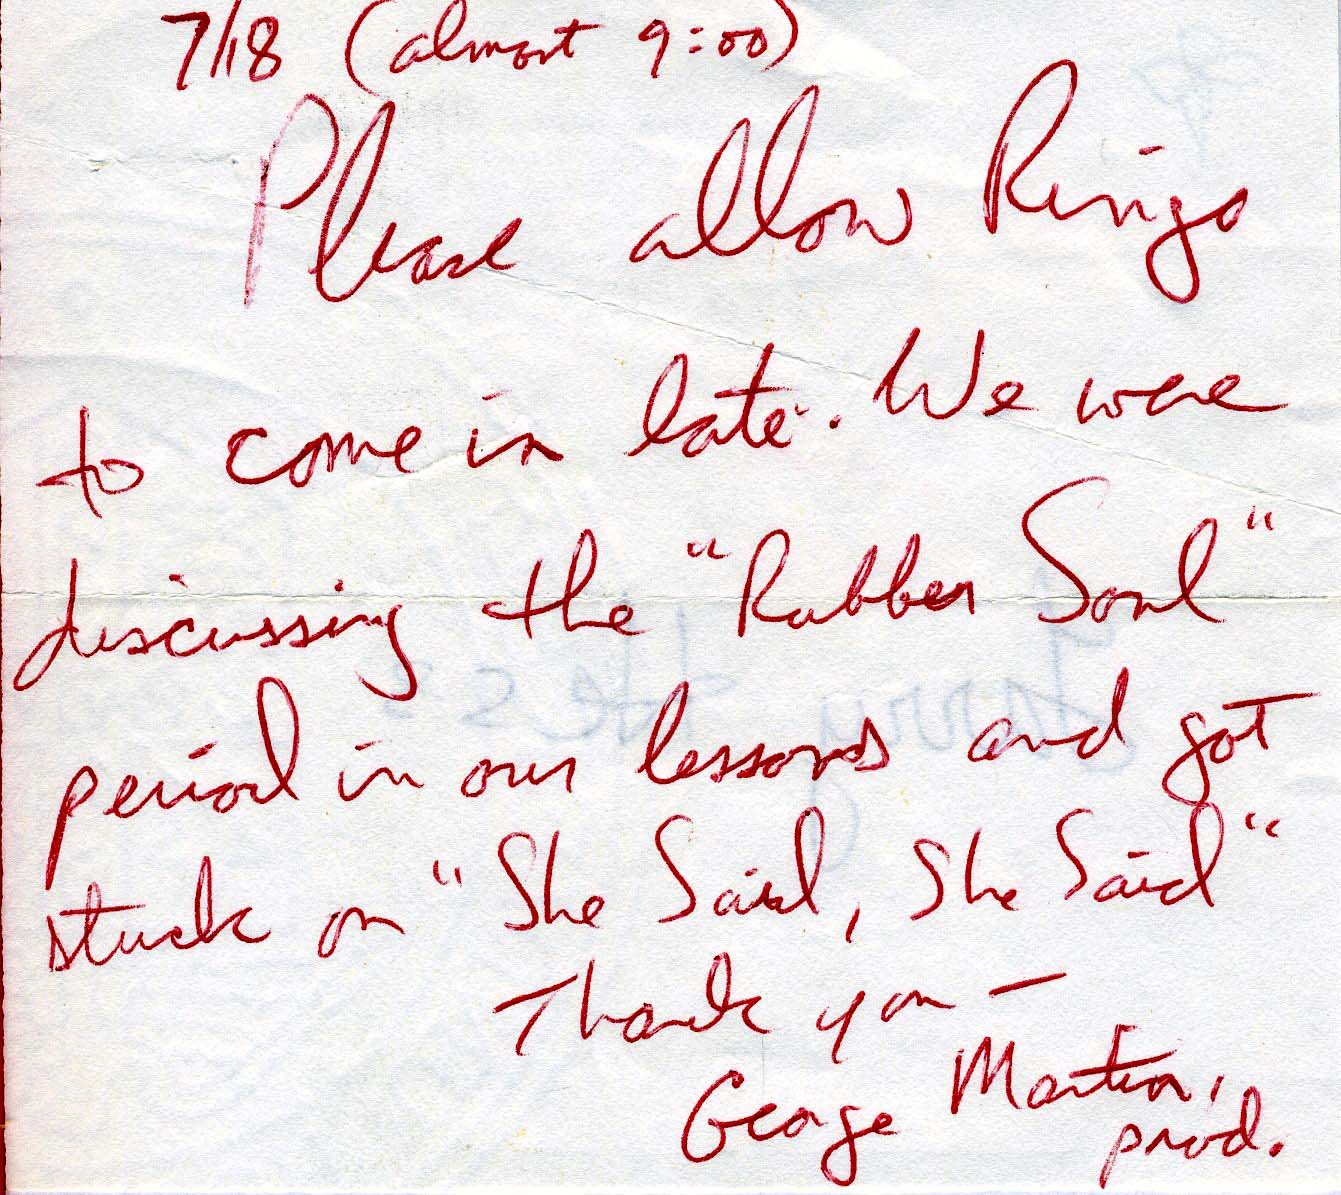 7/18 (almost 9:00)
Please allow Ringo
to come in late. We were
discussing the "Rubber Soul"
period in our lessons and got
stuck on "She Said, She Said"
Thank you —
George Martin,
prod.